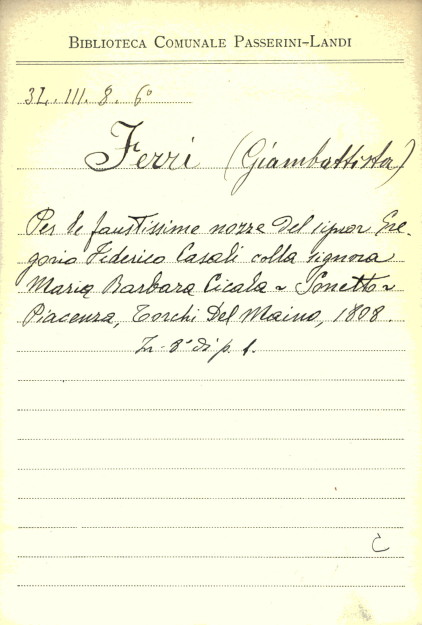 BIBLIOTECA COMUNALE PASSERINI-LANDI
3L. III. 8. 6°
Ferri (Giambattista)
Per le faustissime nozze del signor Gre-
gorio Federico Casali colla signora
Maria Barbara Cicala ~ Sonetto ~
Piacenza, Torchi Del Maino, 1808.
In-8° di p. 1.
C